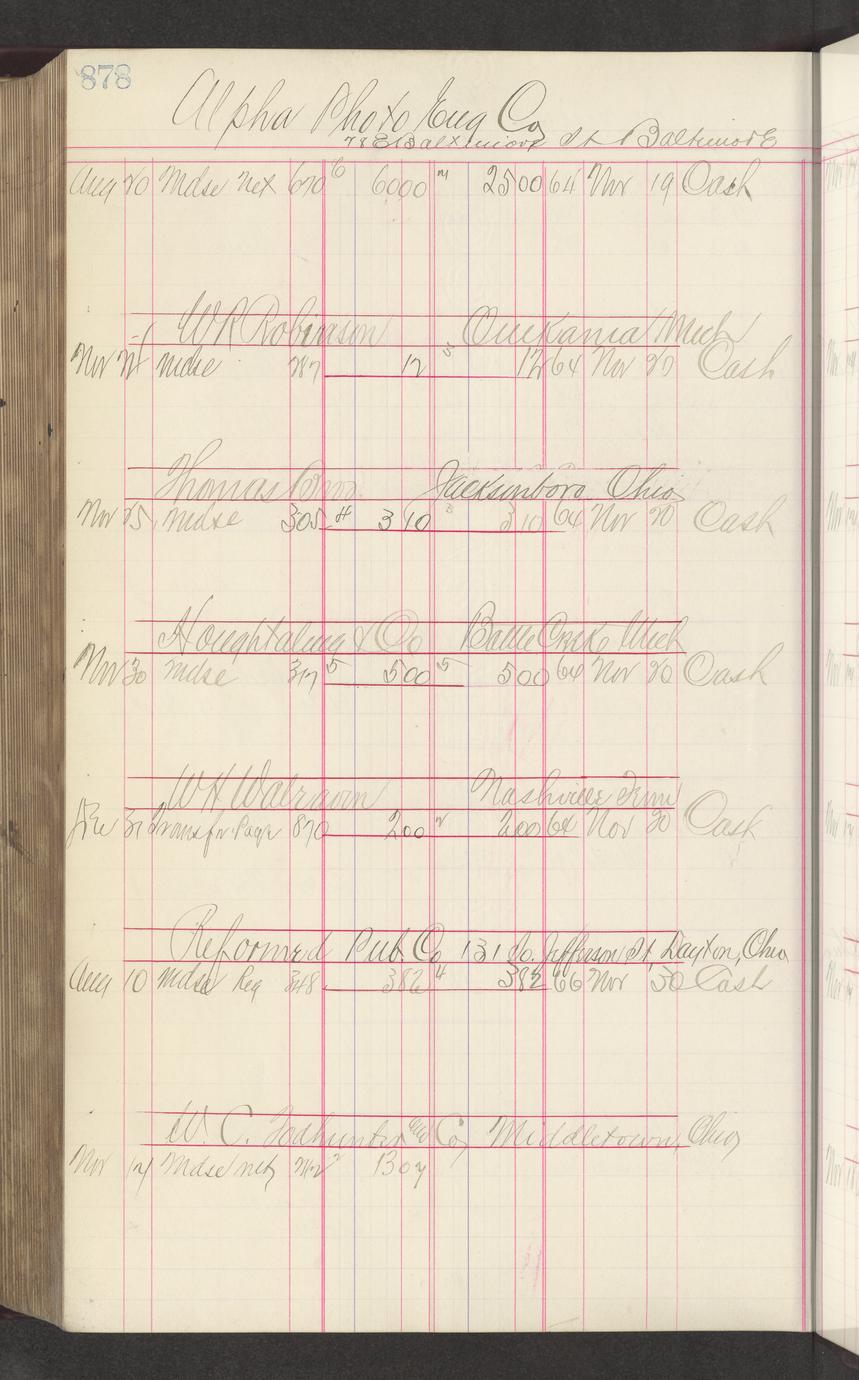 878
Alpha Photo Eng Co
78 E Baltimore St Baltimore
Aug 20 Mdse Net 670 6 6000 2500 64 Nov 19 Cash
W R Robinson Onekama Mich
Nov Mdse 287 12 12 64 Nov 20 Cash
Thomas Bros. Jacksonboro Ohio
Nov 25 Mdse 305 4 310 3 310 64 Nov 20 Cash
Houghtaling & Co Battle Creek Mich
Nov 30 Mdse 317 5 500 5 500 64 Nov 20 Cash
W H Walraven Nashville Tenn
Dec 31 Transfr. Page 870 200 2 200 64 Nov 20 Cash
Reformed Pub. Co 131 So. Jefferson St, Dayton, Ohio
Aug 10 Mdse Reg 348 382 4 382 66 Nov 30 Cash
W. C. Todhunter and Co, Middletown, Ohio
Nov 14 Mdse net 1307